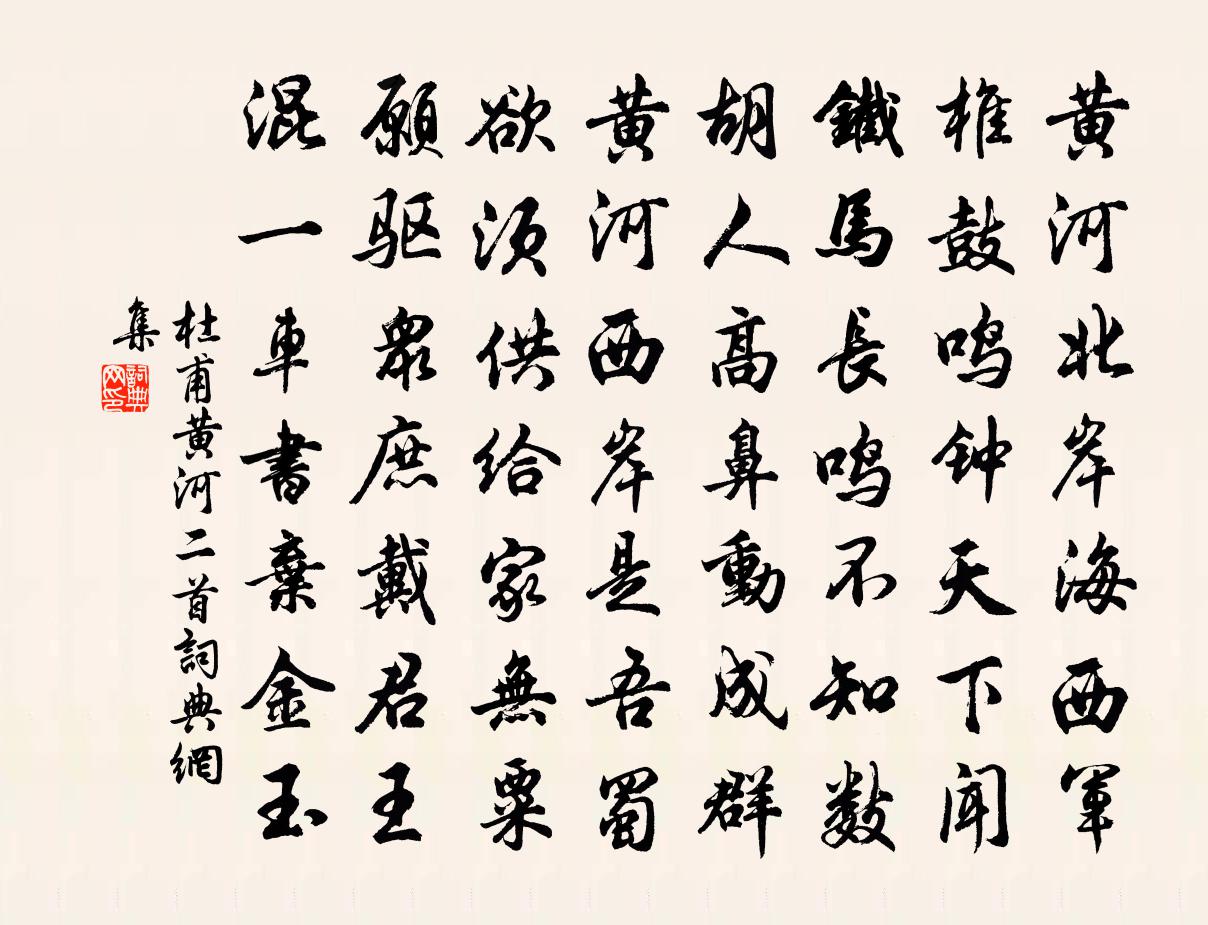 黄河北岸海西军
椎鼓鸣钟天下闻
鐵馬長鸣不知数
胡人高鼻動成群
黄河西岸是吾蜀
欲须供给家無粟
願驱眾庶戴君王
混一車書棄金玉
杜甫黄河二首詞典網
集
詞典
网印